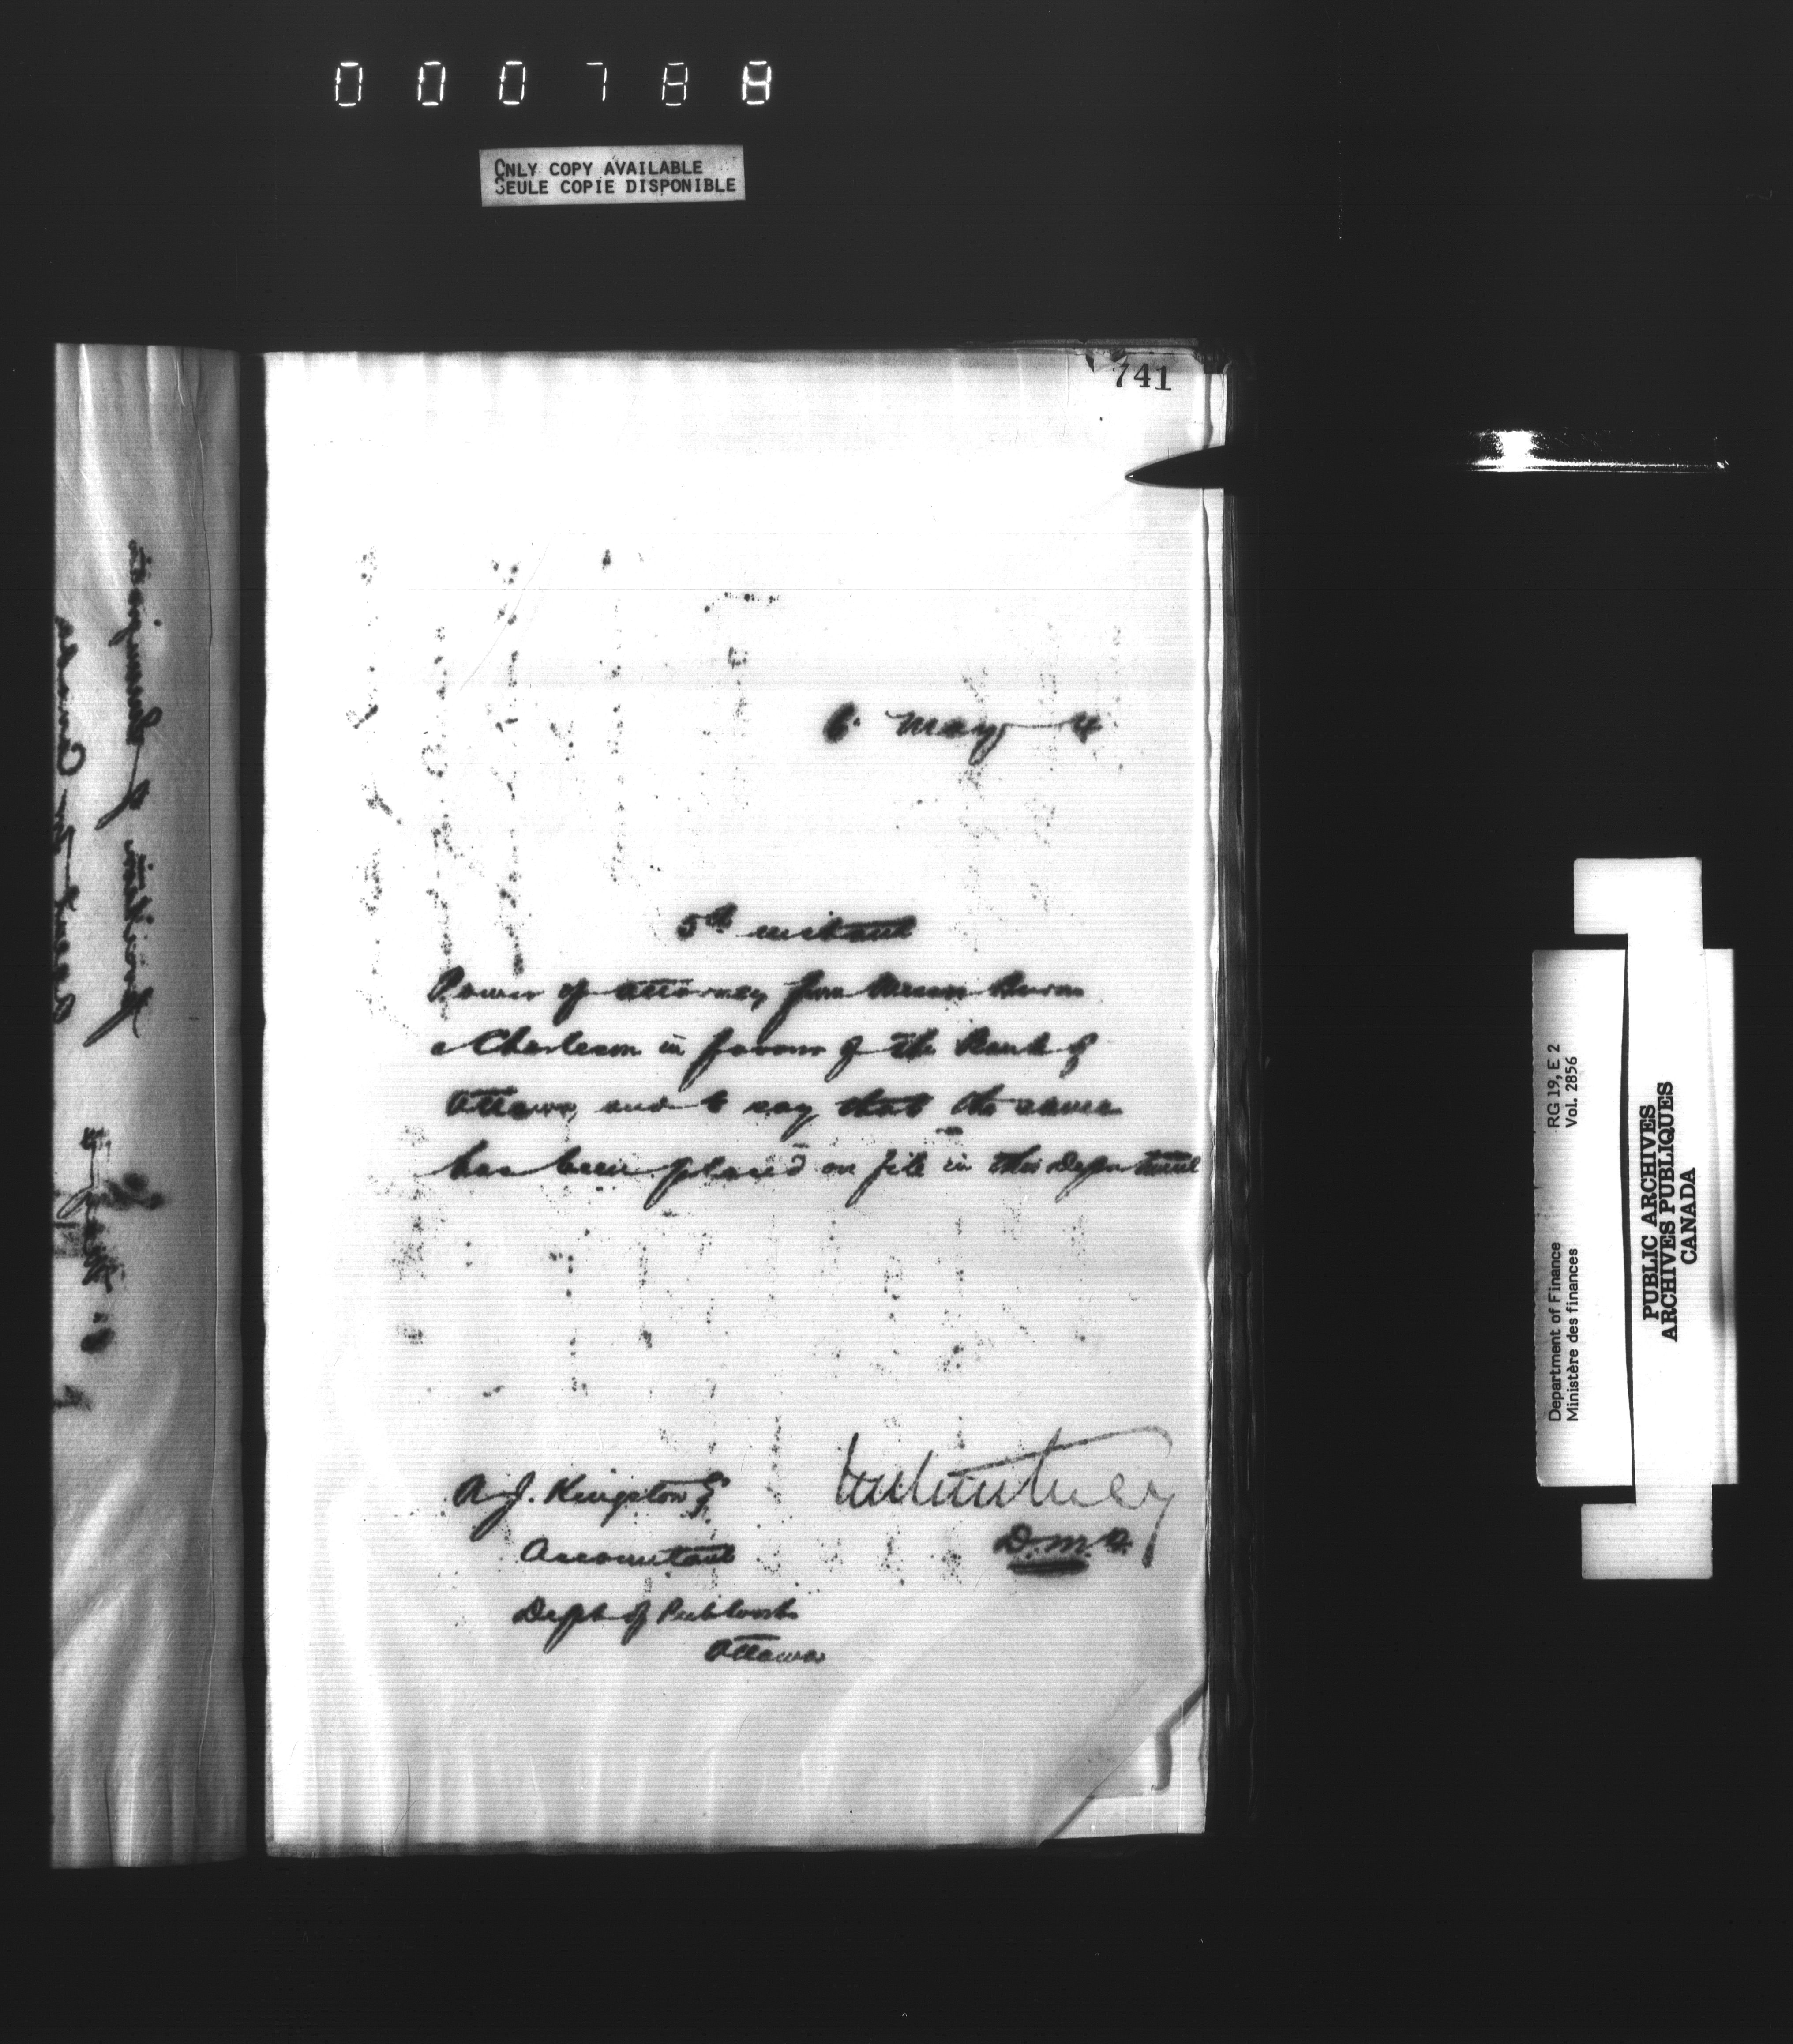 000788
ONLY COPY AVAILABLE
SEULE COPIE DISPONIBLE
741
6 May 4
5th instant
Power of attorney from Messrs
Charleson in favour of the Bank of
Ottawa, and to say that the same
has been placed on file in this Department
A. J. Kingston Esq
Accountant
Dept of Pub Works
Ottawa
D.M.F.
Department of Finance
Ministère des finances
RG 19, E 2
Vol. 2856
PUBLIC ARCHIVES
ARCHIVES PUBLIQUES
CANADA